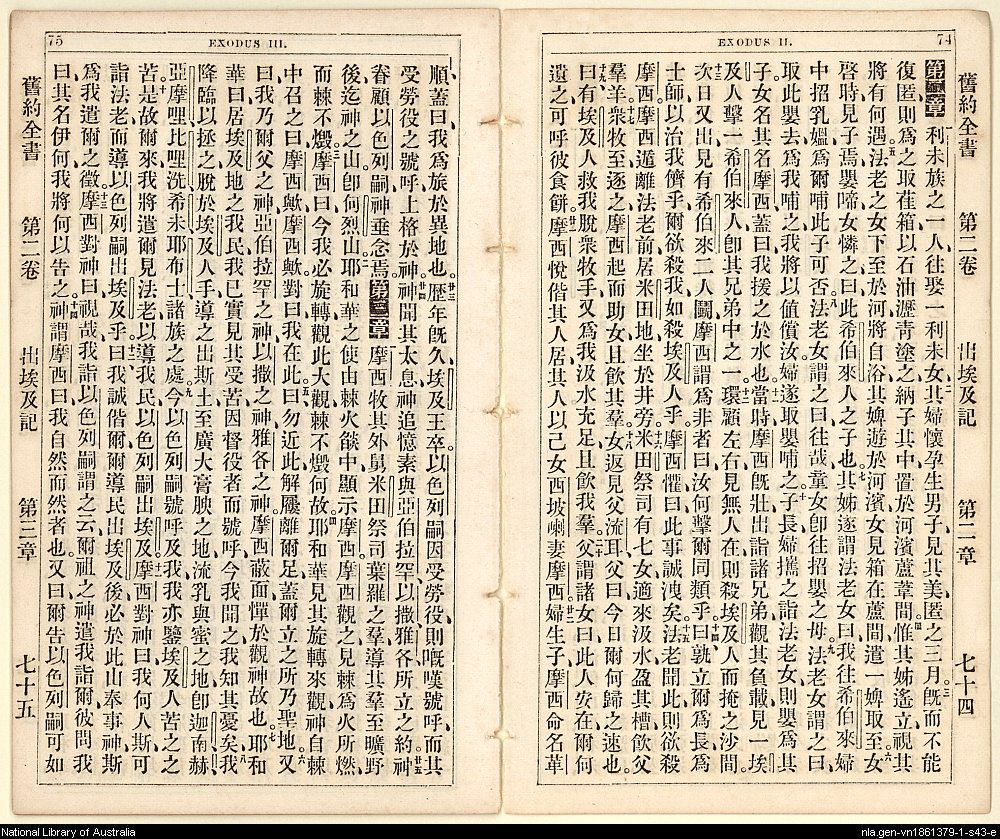 74
EXODUS II.
舊約全書 第二卷 出埃及記 第二章 七十四
第二章 利未族之一人、往娶一利未女、其婦懷孕生男子、見其美、匿之三月。旣而不能
復匿、則爲之取萑箱、以石油瀝青塗之、納子其中、置於河濱蘆葦間。惟其姊遙立、視其
將有何遇。法老之女下至於河、將自浴、其婢遊於河濱、女見箱在蘆間、遣一婢取至。女
啓時見子焉、嬰啼、女憐之、曰、此希伯來人之子也。其姊遂謂法老女曰、我往希伯來婦
中、招乳媼爲爾哺此子、可否。法老女謂之曰、往哉、童女卽往、招嬰之母。法老女謂之曰、
取此嬰去、爲我哺之、我將以値償汝、婦遂取嬰哺之。子長、婦攜之詣法老女、則嬰爲其
子、女名其名摩西、蓋曰、我援之於水也。當時摩西旣壯、出詣諸兄弟、觀其負載、見一埃
及人擊一希伯來人、卽其兄弟中之一。環顧左右、見無人在、則殺埃及人而掩之沙間。
次日又出、見有希伯來二人鬭、摩西謂爲非者曰、汝何擊爾同類乎。曰、孰立爾爲長爲
士師、以治我儕乎、爾欲殺我、如殺埃及人乎、摩西懼曰、此事誠洩矣。法老聞此、則欲殺
摩西、摩西遁離法老前、居米田地、坐於井旁。米田祭司有七女、女適來汲水盈其槽、飲父
羣羊。衆牧至逐之、摩西起而助女、且飲其羣。女返見父流耳、父曰、今日爾何歸之速也。
曰、有埃及人救我脫衆牧手、又爲我汲水充足、且飲我羣。父謂諸女曰、此人安在、爾何
遺之、可呼彼食餅。摩西悅偕其人居、其人以己女西坡喇妻摩西。婦生子、摩西命名革
75
EXODUS III.
順、蓋曰、我爲旅於異地也。歷年旣久、埃及王卒、以色列嗣因受勞役、則嘅嘆號呼、而其
受勞役之號呼、上格於神。神聞其太息、神追憶素與亞伯拉罕以撒雅各所立之約。神
眷顧以色列嗣、神垂念焉。第三章 摩西牧其外舅米田祭司葉羅之羣、導其羣至曠野
後、迄神之山、卽何烈山。耶和華之使、由棘火燄中顯示摩西、摩西觀之、見棘爲火所燃、
而棘不燬。摩西曰、今我必旋轉觀此大觀、棘不燬何故。耶和華見其旋轉來觀、神自棘
中召之曰、摩西歟、摩西歟、對曰、我在此。曰、勿近此、解屨離爾足、蓋爾立之所乃聖地。又
曰、我乃爾父之神、亞伯拉罕之神、以撒之神、雅各之神、摩西蔽面、憚於觀神故也。耶和
華曰、居埃及地之我民、我已實見其受苦、因督役者而號呼、今我聞之、我知其憂矣。我
降臨以拯之脫於埃及人手、導之出斯土、至廣大膏腴之地、流乳與蜜之地、卽迦南赫
亞摩哩比哩洗希未耶布士諸族之處。今以色列嗣號呼及我、我亦鑒埃及人苦之之
苦。是故爾來、我將遣爾見法老、以導我民以色列嗣出埃及。摩西對神曰、我何人斯、可
詣法老、而導以色列嗣出埃及乎。曰、我誠偕爾、爾導民出埃及後、必於此山奉事神、斯
爲我遣爾之徵。摩西對神曰、視哉、我詣以色列嗣、謂之云、爾祖之神遣我詣爾、彼問我
曰、其名伊何、我將何以告之。神謂摩西曰、我自然而然者也、又曰、爾告以色列嗣可如
舊約全書 第二卷 出埃及記 第三章 七十五
National Library of Australia
nla.gen-vn1861379-1-s43-e